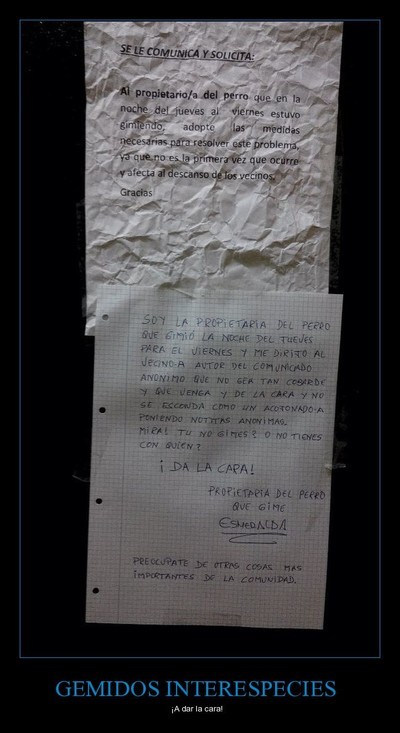 SE LE COMUNICA Y SOLICITA:
Al propietario/a del perro que en la
noche del jueves al viernes estuvo
gimiendo, adopte las medidas
necesarias para resolver este problema,
ya que no es la primera vez que ocurre
y afecta al descanso de los vecinos.
Gracias
SOY LA PROPIETARIA DEL PERRO
QUE GIMIÓ LA NOCHE DEL JUEVES
PARA EL VIERNES Y ME DIRIJO AL
VECINO-A AUTOR DEL COMUNICADO
ANONIMO QUE NO SEA TAN COBARDE
Y QUE VENGA Y DE LA CARA Y NO
SE ESCONDA COMO UN ACOJONADO-A
PONIENDO NOTITAS ANONIMAS.
MIRA! TU NO GIMES? O NO TIENES
CON QUIEN?
¡DA LA CARA!
PROPIETARIA DEL PERRO
QUE GIME
ESMERALDA
PREOCUPATE DE OTRAS COSAS MAS
IMPORTANTES DE LA COMUNIDAD.
GEMIDOS INTERESPECIES
¡A dar la cara!